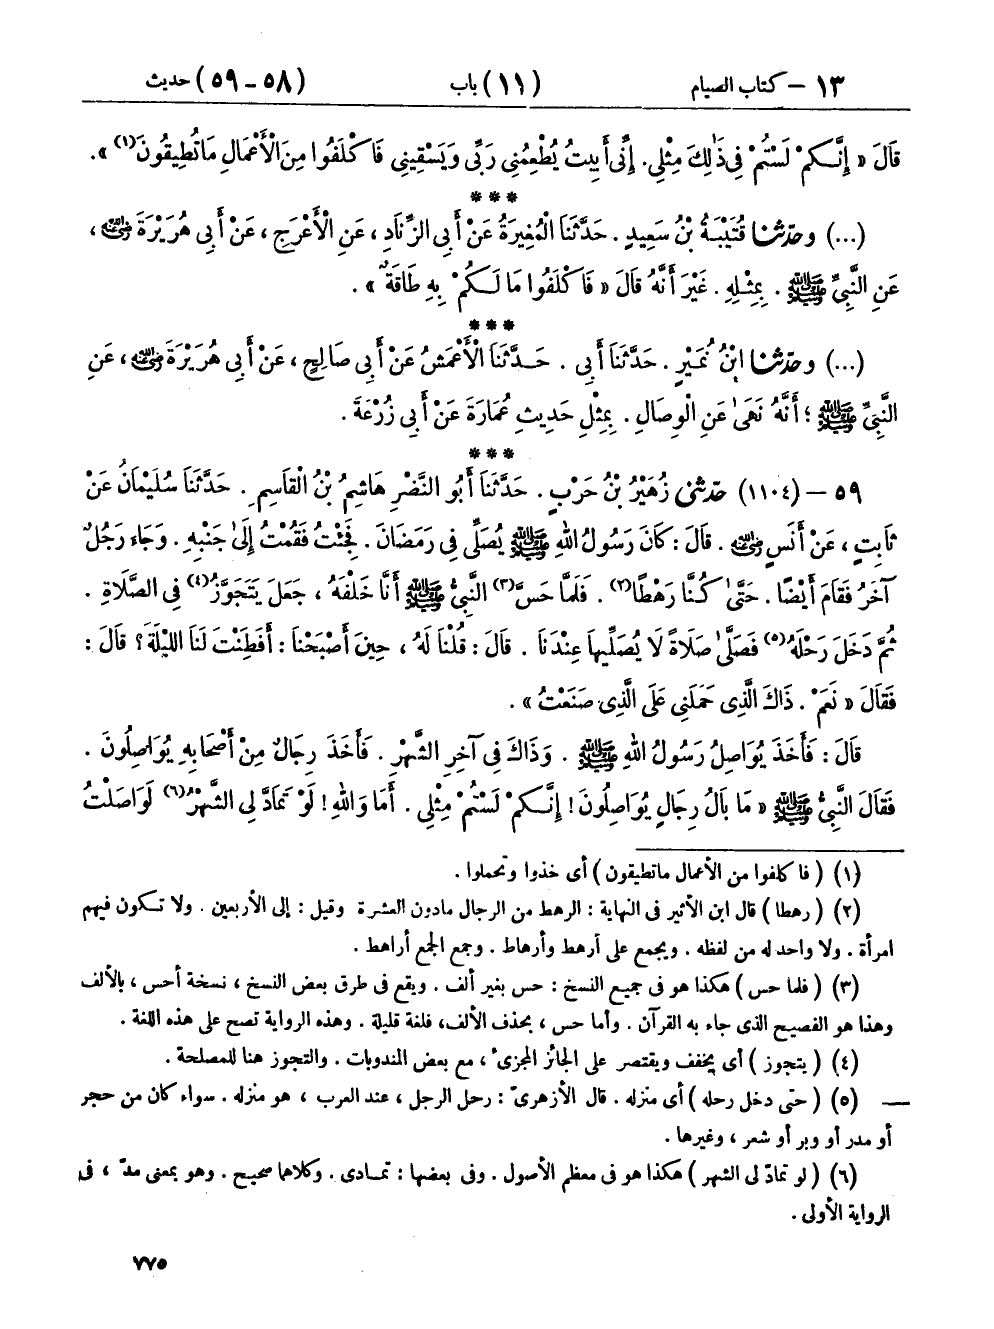 ١٣ – كتاب الصيام (١١) باب (٥٨ - ٥٩) حديث
قَالَ « إِنَّكُمْ لَسْتُمْ فِي ذَٰلِكَ مِثْلِي. إِنِّي أَبِيتُ يُطْعِمُنِي رَبِّي وَيَسْقِينِي فَاكْلَفُوا مِنَ الْأَعْمَالِ مَا تُطِيقُونَ(١) ».
***
(...) وحَدَّثَنَا قُتَيْبَةُ بْنُ سَعِيدٍ . حَدَّثَنَا الْمُغِيرَةُ عَنْ أَبِي الزِّنَادِ ، عَنِ الْأَعْرَجِ ، عَنْ أَبِي هُرَيْرَةَ رضي الله عنه ،
عَنِ النَّبِيِّ ﷺ . بِمِثْلِهِ . غَيْرَ أَنَّهُ قَالَ « فَاكْلَفُوا مَا لَكُمْ بِهِ طَاقَةٌ » .
***
(...) وحَدَّثَنَا ابْنُ نُمَيْرٍ . حَدَّثَنَا أَبِي . حَدَّثَنَا الْأَعْمَشُ عَنْ أَبِي صَالِحٍ ، عَنْ أَبِي هُرَيْرَةَ رضي الله عنه ، عَنِ
النَّبِيِّ ﷺ ؛ أَنَّهُ نَهَىٰ عَنِ الْوِصَالِ . بِمِثْلِ حَدِيثِ عُمَارَةَ عَنْ أَبِي زُرْعَةَ .
***
٥٩ – (١١٠٤) حَدَّثَنِي زُهَيْرُ بْنُ حَرْبٍ . حَدَّثَنَا أَبُو النَّضْرِ هَاشِمُ بْنُ الْقَاسِمِ . حَدَّثَنَا سُلَيْمَانُ عَنْ
ثَابِتٍ ، عَنْ أَنَسٍ رضي الله عنه . قَالَ : كَانَ رَسُولُ اللهِ ﷺ يُصَلِّي فِي رَمَضَانَ . فَجِئْتُ فَقُمْتُ إِلَىٰ جَنْبِهِ . وَجَاءَ رَجُلٌ
آخَرُ فَقَامَ أَيْضًا . حَتَّىٰ كُنَّا رَهْطًا(٢) . فَلَمَّا حَسَّ(٣) النَّبِيُّ ﷺ أَنَّا خَلْفَهُ ، جَعَلَ يَتَجَوَّزُ(٤) فِي الصَّلَاةِ .
ثُمَّ دَخَلَ رَحْلَهُ(٥) فَصَلَّىٰ صَلَاةً لَا يُصَلِّيهَا عِنْدَنَا . قَالَ : قُلْنَا لَهُ ، حِينَ أَصْبَحْنَا : أَفَطِنْتَ لَنَا اللَّيْلَةَ ؟ قَالَ :
فَقَالَ « نَعَمْ . ذَاكَ الَّذِي حَمَلَنِي عَلَى الَّذِي صَنَعْتُ » .
قَالَ : فَأَخَذَ يُوَاصِلُ رَسُولُ اللهِ ﷺ . وَذَاكَ فِي آخِرِ الشَّهْرِ . فَأَخَذَ رِجَالٌ مِنْ أَصْحَابِهِ يُوَاصِلُونَ .
فَقَالَ النَّبِيُّ ﷺ « مَا بَالُ رِجَالٍ يُوَاصِلُونَ ! إِنَّكُمْ لَسْتُمْ مِثْلِي . أَمَا وَاللهِ ! لَوْ تَمَادَّ لِي الشَّهْرُ(٦) لَوَاصَلْتُ
(١) ( فاكلفوا من الأعمال ماتطيقون ) أى خذوا وتحملوا .
(٢) ( رهطا ) قال ابن الأثير فى النهاية : الرهط من الرجال مادون العشرة وقيل : إلى الأربعين . ولا تكون فيهم
امرأة . ولا واحد له من لفظه . ويجمع على أرهط وأرهاط . وجمع الجمع أراهط .
(٣) ( فلما حس ) هكذا هو فى جميع النسخ : حس بغير ألف . ويقع فى طرق بعض النسخ ، نسخة أحس ، بالألف
وهذا هو الفصيح الذى جاء به القرآن . وأما حس ، بحذف الألف، فلغة قليلة . وهذه الرواية تصح على هذه اللغة .
(٤) ( يتجوز ) أى يخفف ويقتصر على الجائز المجزىء ، مع بعض المندوبات . والتجوز هنا للمصلحة .
(٥) ( حتى دخل رحله ) أى منزله . قال الأزهرىّ : رحل الرجل ، عند العرب ، هو منزله . سواء كان من حجر
أو مدر أو وبر أو شعر ، وغيرها .
(٦) ( لو تمادّ لى الشهر ) هكذا هو فى معظم الأصول . وفى بعضها : تمادى . وكلاهما صحيح . وهو بمعنى مدّ ، فى
الرواية الأولى .
٧٧٥